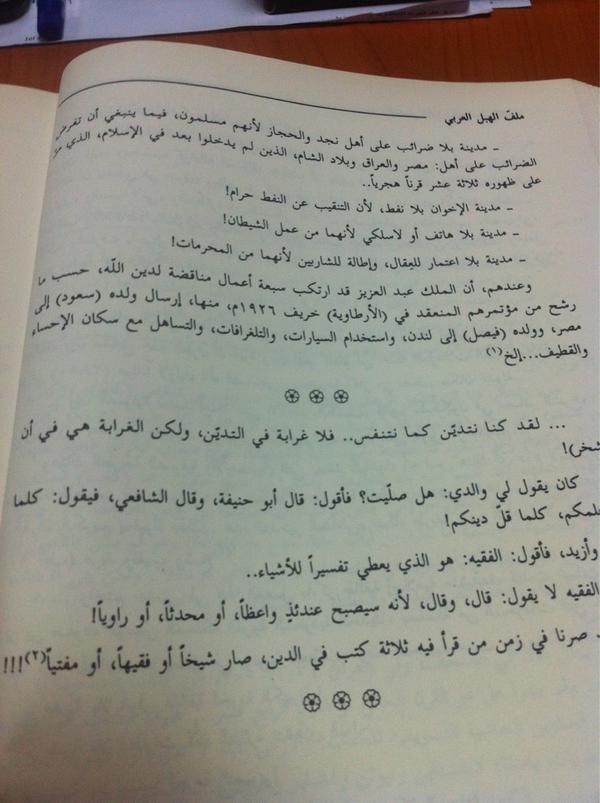 ملفّ الهبل العربي
ـ مدينة بلا ضرائب على أهل نجد والحجاز لأنهم مسلمون، فيما ينبغي أن تفرض
الضرائب على أهل: مصر والعراق وبلاد الشام، الذين لم يدخلوا بعد في الإسلام، الذي مرّ
على ظهوره ثلاثة عشر قرناً هجرياً..
ـ مدينة الإخوان بلا نفط، لأن التنقيب عن النفط حرام!
ـ مدينة بلا هاتف أو لاسلكي لأنهما من عمل الشيطان!
ـ مدينة بلا اعتمار للعِقال، وإطالة للشاربين لأنهما من المحرمات!
وعندهم، أن الملك عبد العزيز قد ارتكب سبعة أعمال مناقضة لدين الله، حسب ما
رشح من مؤتمرهم المنعقد في (الأرطاوية) خريف ١٩٢٦م، منها، إرسال ولده (سعود) إلى
مصر، وولده (فيصل) إلى لندن، واستخدام السيارات، والتلغرافات، والتساهل مع سكان الإحساء
والقطيف...إلخ(١)
... لقد كنا نتديّن كما نتنفس.. فلا غرابة في التديّن، ولكن الغرابة هي في أن
شخر)!
كان يقول لي والدي: هل صلّيت؟ فأقول: قال أبو حنيفة، وقال الشافعي، فيقول: كلما
علمكم، كلما قلّ دينكم!
وأزيد، فأقول: الفقيه: هو الذي يعطي تفسيراً للأشياء..
الفقيه لا يقول: قال، وقال، لأنه سيصبح عندئذٍ واعظاً، أو محدثاً، أو راوياً!
صرنا في زمن من قرأ فيه ثلاثة كتب في الدين، صار شيخاً أو فقيهاً، أو مفتياً(٢)!!!